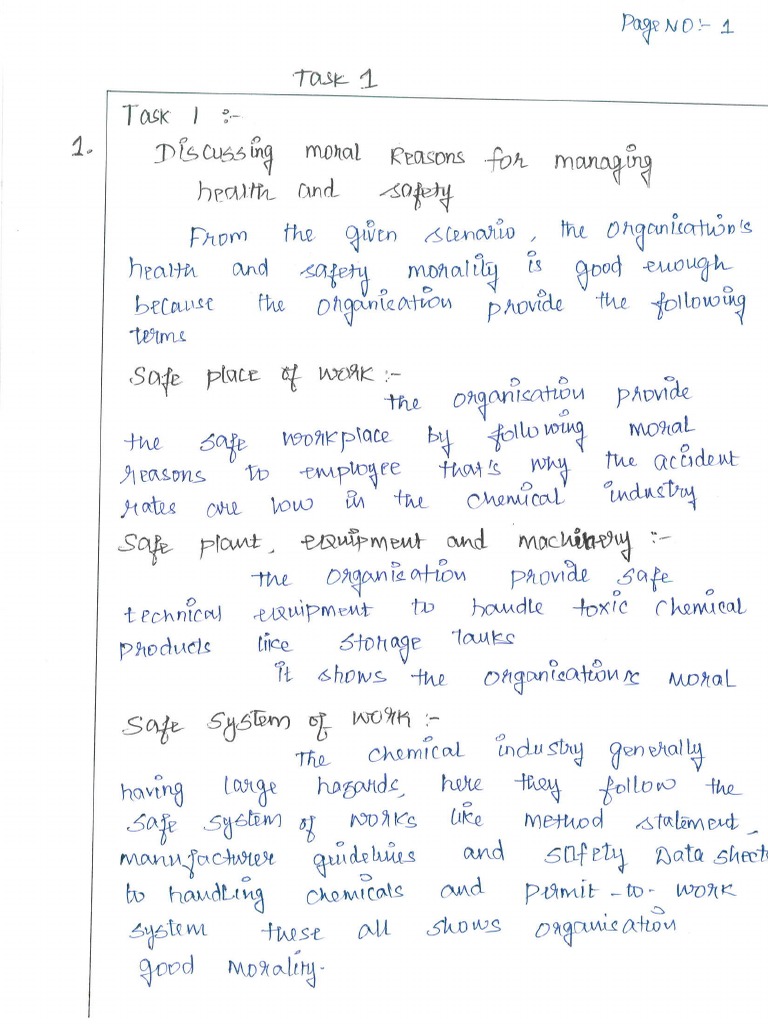 Page NO:- 1
Task 1
Task 1 :-
1. Discussing moral Reasons for managing
health and safety
From the given scenario, the Organisation's
health and safety morality is good enough
because the organisation provide the following
terms
Safe place of work :-
the organisation provide
the safe workplace by following moral
reasons to employee that's why the accident
rates are low in the chemical industry
Safe plant, equipment and machinery :-
the organisation provide safe
technical equipment to handle toxic chemical
products like storage tanks
it shows the organisations moral
Safe system of work :-
The chemical industry generally
having large hazards, here they follow the
safe system of works like method statement,
manufacturer guidelines and safety Data sheets
to handling chemicals and permit-to-work
system these all shows organisation
good morality.